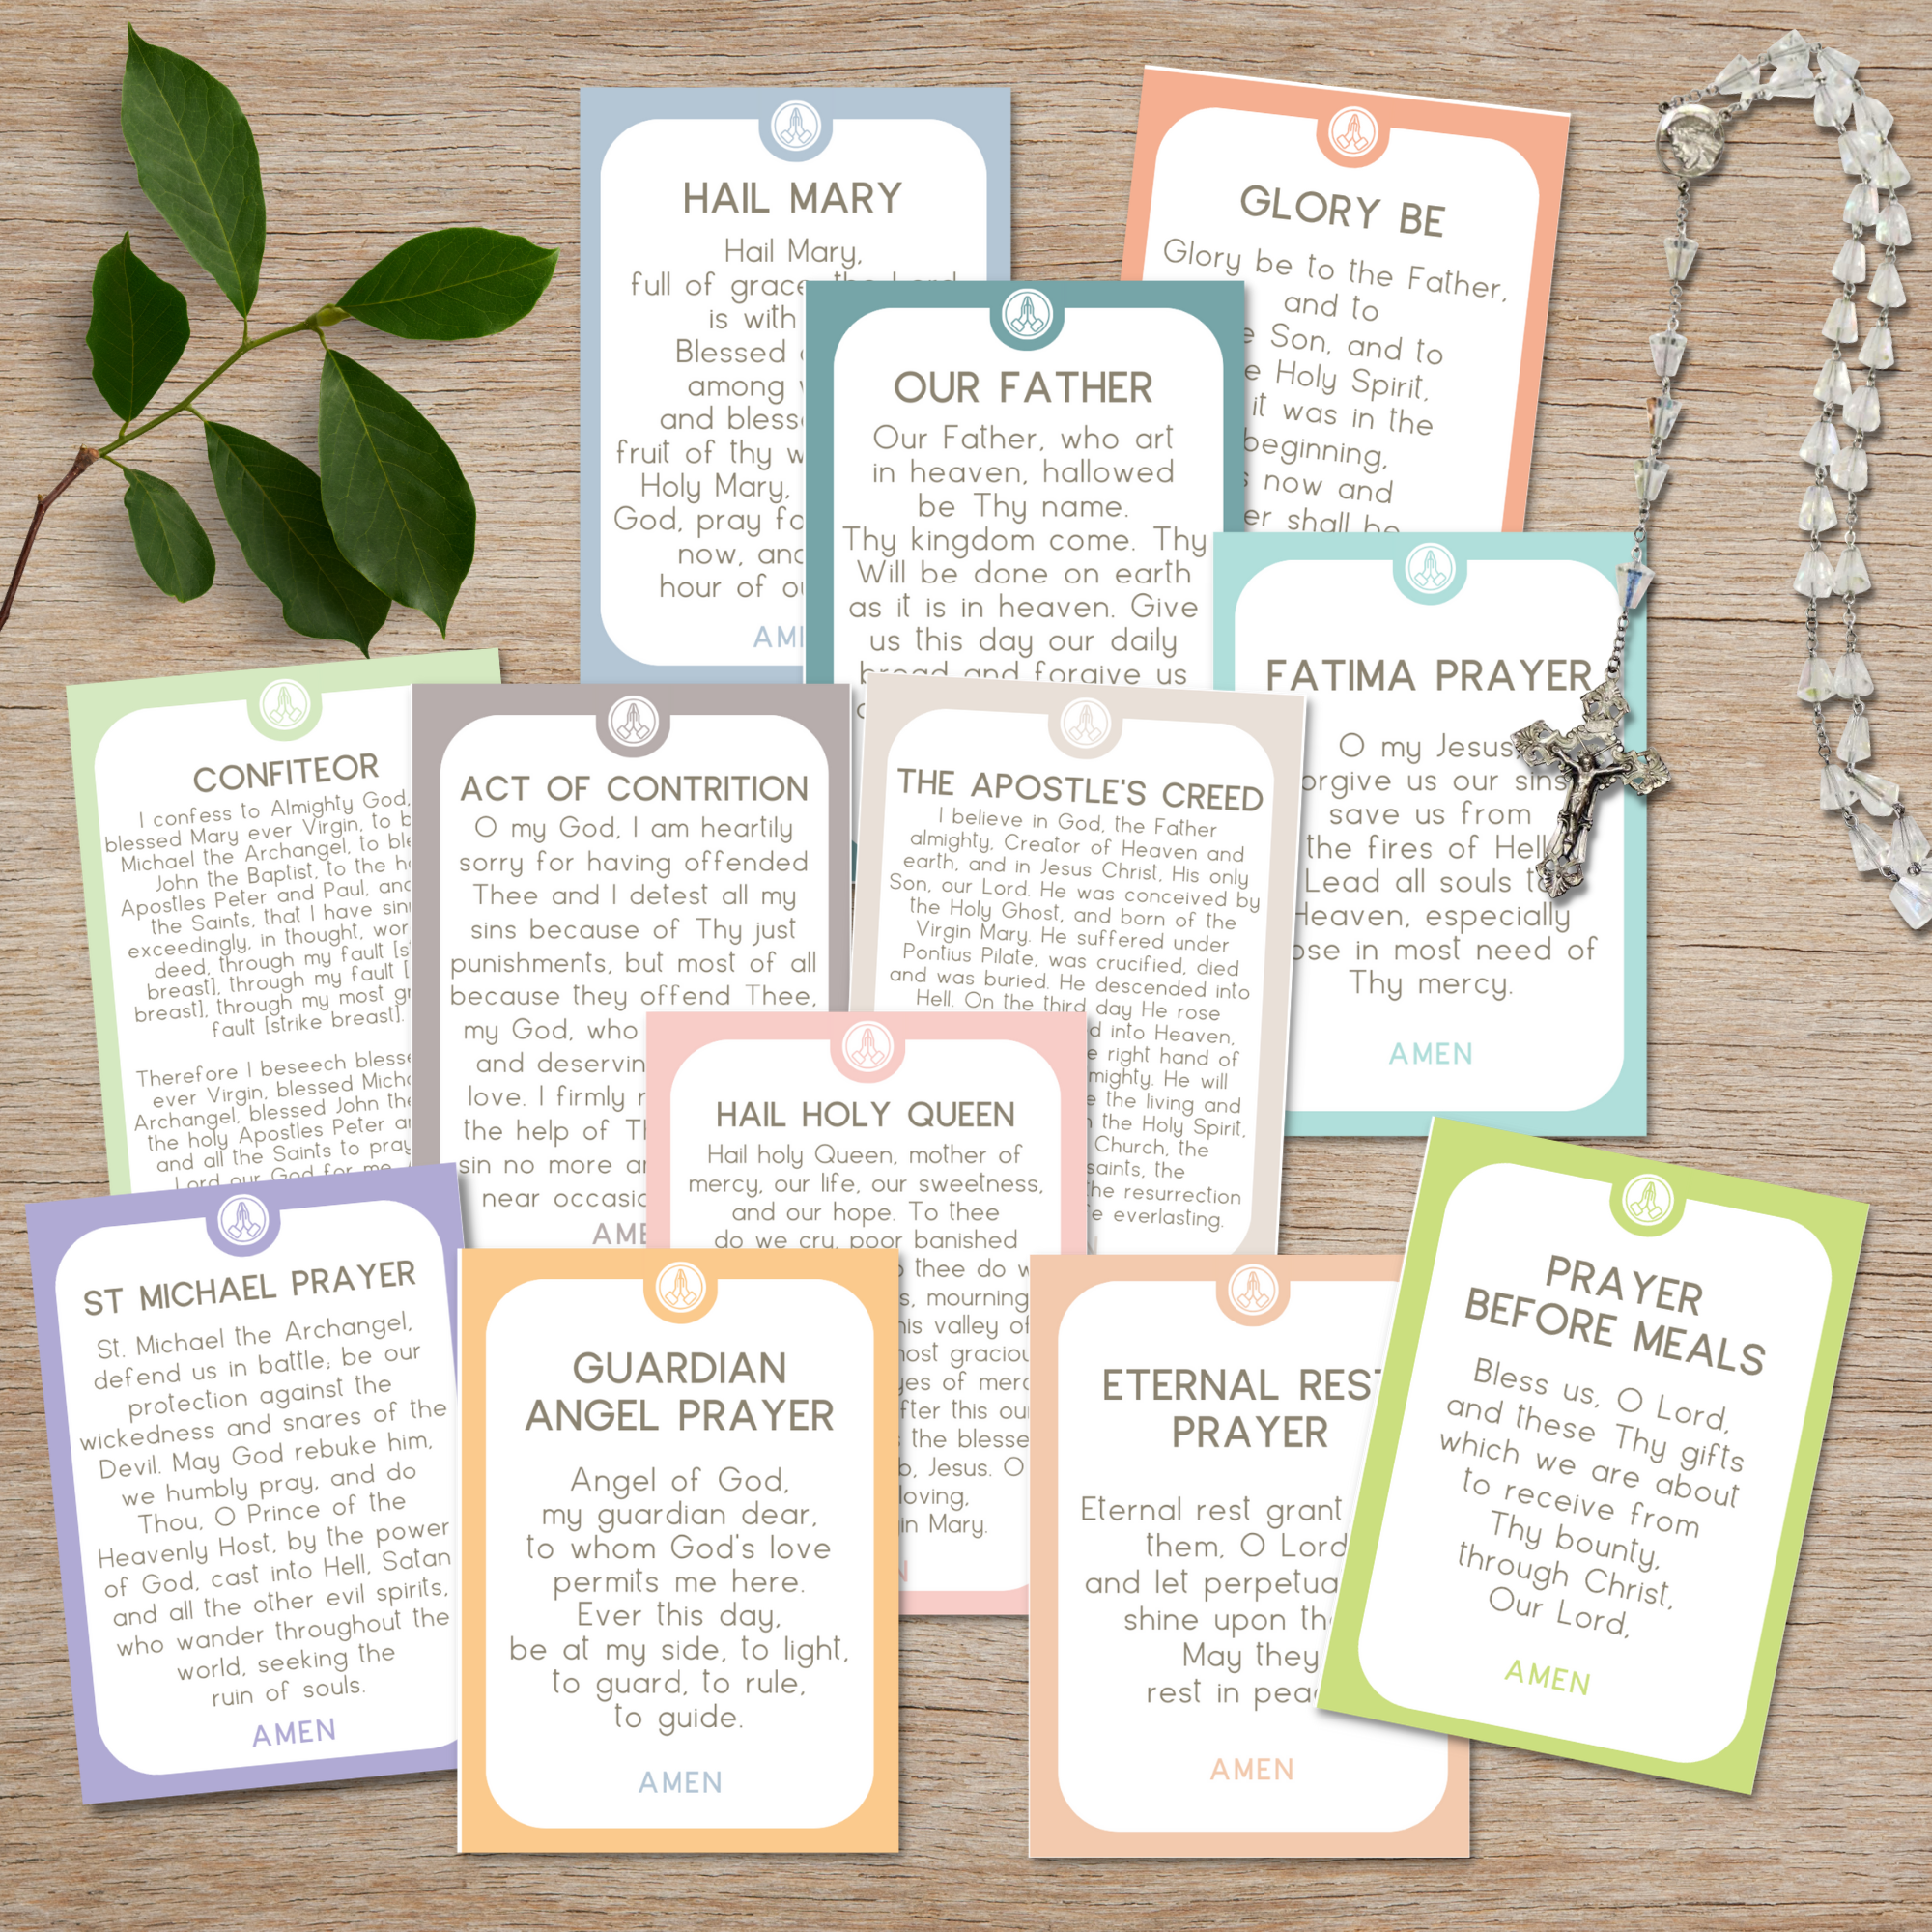 HAIL MARY
Hail Mary,
full of grace
is with
Blessed
among
and
fruit of thy
Holy Mary,
God, pray
now,
hour of
GLORY BE
Glory be to the Father,
and to
Son, and to
Holy Spirit,
it was in the
beginning,
now and
shall be
OUR FATHER
Our Father, who art
in heaven, hallowed
be Thy name.
Thy kingdom come. Thy
Will be done on earth
as it is in heaven. Give
us this day our daily
bread and forgive us
FATIMA PRAYER
O my Jesus,
us our sins
save us from
the fires of Hell
Lead all souls to
Heaven, especially
in most need of
Thy mercy.
AMEN
CONFITEOR
I confess to Almighty God,
blessed Mary ever Virgin, to
Michael the Archangel, to
John the Baptist, to the
Apostles Peter and Paul,
the Saints, that I have
exceedingly, in thought,
deed, through my fault
breast], through my fault [
breast], through my most
fault [strike breast].
Therefore I beseech
ever Virgin, blessed
Archangel, blessed John
the holy Apostles Peter
and all the Saints to pray
Lord our God for me
ACT OF CONTRITION
O my God, I am heartily
sorry for having offended
Thee and I detest all my
sins because of Thy just
punishments, but most of all
because they offend Thee,
my God, who
and
love. I firmly
the help of
sin no more
near
THE APOSTLE'S CREED
I believe in God, the Father
almighty, Creator of Heaven and
earth, and in Jesus Christ, His only
Son, our Lord. He was conceived by
the Holy Ghost, and born of the
Virgin Mary. He suffered under
Pontius Pilate, was crucified, died
and was buried. He descended into
Hell. On the third day He rose
into Heaven,
right hand of
He will
the living and
the Holy Spirit,
Church, the
the
resurrection
everlasting.
HAIL HOLY QUEEN
Hail holy Queen, mother of
mercy, our life, our sweetness,
and our hope. To thee
do we cry, poor banished
thee do
mourning
valley
of
this
the
Jesus. O
loving,
Mary.
ST MICHAEL PRAYER
St. Michael the Archangel,
defend us in battle; be our
protection against the
wickedness and snares of the
Devil. May God rebuke him,
we humbly pray, and do
Thou, O Prince of the
Heavenly Host, by the power
of God, cast into Hell, Satan
and all the other evil spirits,
who wander throughout the
world, seeking the
ruin of souls.
AMEN
GUARDIAN
ANGEL PRAYER
Angel of God,
my guardian dear,
to whom God's love
permits me here.
Ever this day,
be at my side, to light,
to guard, to rule,
to guide.
AMEN
ETERNAL REST
PRAYER
Eternal rest grant
them, O Lord
and let
shine upon
May they
rest in
AMEN
PRAYER
BEFORE MEALS
Bless us, O Lord,
and these Thy gifts
which we are about
to receive from
Thy bounty,
through Christ,
Our Lord,
AMEN